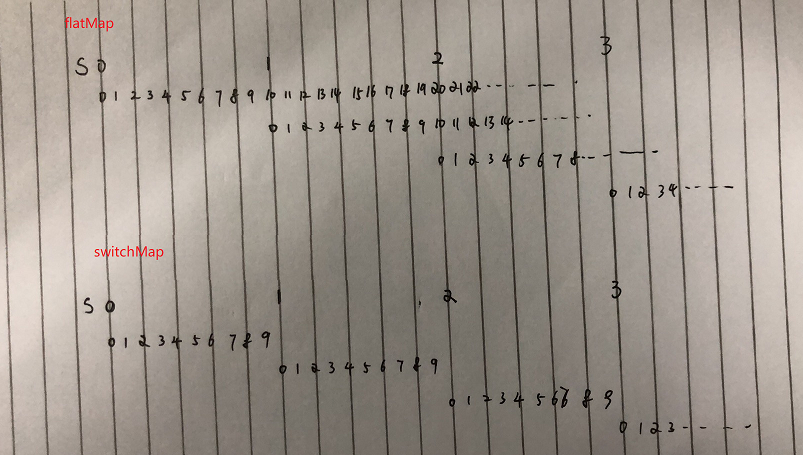 flatMap
S 0 1 2 3
0 1 2 3 4 5 6 7 8 9 10 11 12 13 14 15 16 17 18 19 20 21 22 - - - - - -
0 1 2 3 4 5 6 7 8 9 10 11 12 13 14 - - - - - -
0 1 2 3 4 5 6 7 8 - - - - -
0 1 2 3 4 - - - -
switchMap
S 0 1 2 3
0 1 2 3 4 5 6 7 8 9
0 1 2 3 4 5 6 7 8 9
0 1 2 3 4 5 6 8 9
0 1 2 3 - - - - -